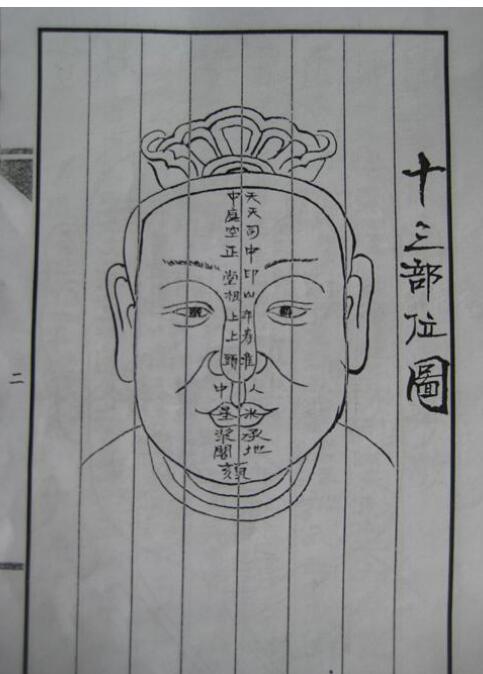 十三部位圖
天中
天庭
司空
中正
印堂
山根
年上
寿上
准頭
人中
水星
承漿
地閣
頦
二